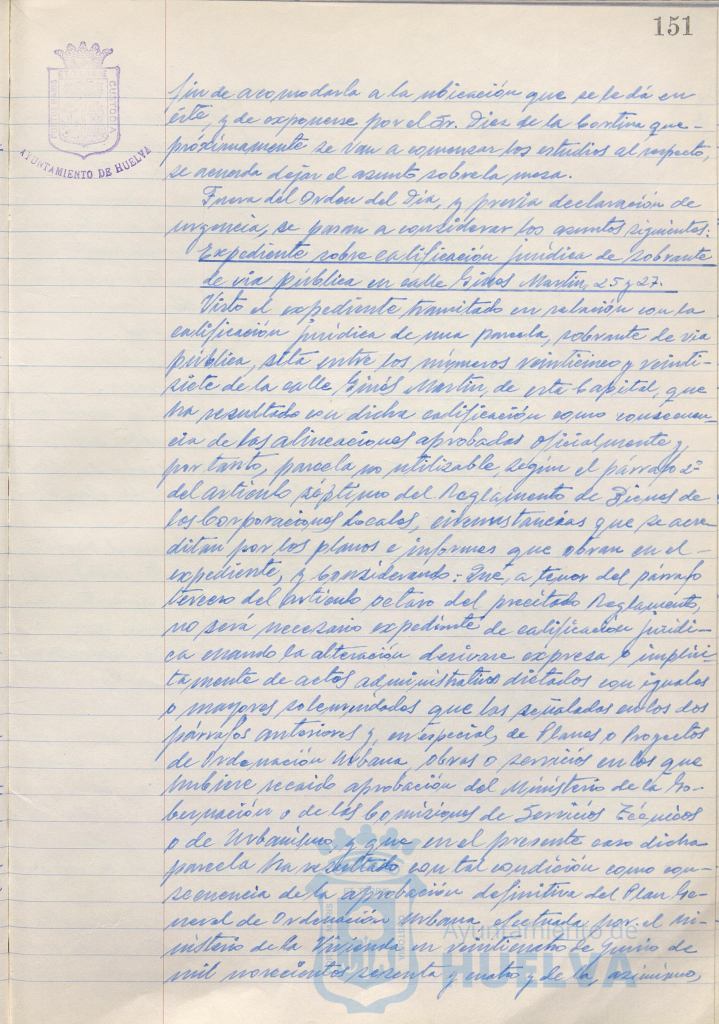 151
AYUNTAMIENTO DE HUELVA
fin de acomodarla a la ubicación que se le dá en
éste, y de exponerse por el Sr. Diez de la Cortina que-
próximamente se van a comenzar los estudios al respecto,
se acuerda dejar el asunto sobre la mesa.
Fuera del Orden del Día, y previa declaración de
urgencia, se pasan a considerar los asuntos siguientes:
Expediente sobre calificación jurídica de sobrante
de via pública en calle Ginés Martín, 25 y 27.
Visto el expediente tramitado en relación con la
calificación jurídica de una parcela, sobrante de via
pública, sita entre los números veinticinco y veinti-
siete de la calle Ginés Martín, de esta Capital, que
ha resultado con dicha calificación como consecuen-
cia de las alineaciones aprobadas oficialmente y,
por tanto, parcela no utilizable según el párrafo 2º
del artículo séptimo del Reglamento de Bienes de
las Corporaciones Locales, circunstancias que se acre
ditan por los planos e informes que obran en el-
expediente, y Considerando: Que, a tenor del párrafo
tercero del artículo octavo del precitado Reglamento,
no será necesario expediente de calificación jurídi-
ca cuando la alteración derivare expresa o implíci-
tamente de actos administrativos dictados con iguales
o mayores solemnidades que las señaladas en los dos
párrafos anteriores y, en especial, de Planes o Proyectos
de Ordenación Urbana, obras o servicios en los que
hubiere recaido aprobación del Ministerio de la Go-
bernación o de las Comisiones de Servicios Técnicos
o de Urbanismo, y que, en el presente caso dicha
parcela ha resultado con tal condición como con-
secuencia de la aprobación definitiva del Plan Ge-
neral de Ordenación Urbana, efectuada por el Mi-
nisterio de la Vivienda en veinticuatro de Junio de
mil novecientos sesenta y cuatro y de la, asimismo,
Ayuntamiento de
HUELVA